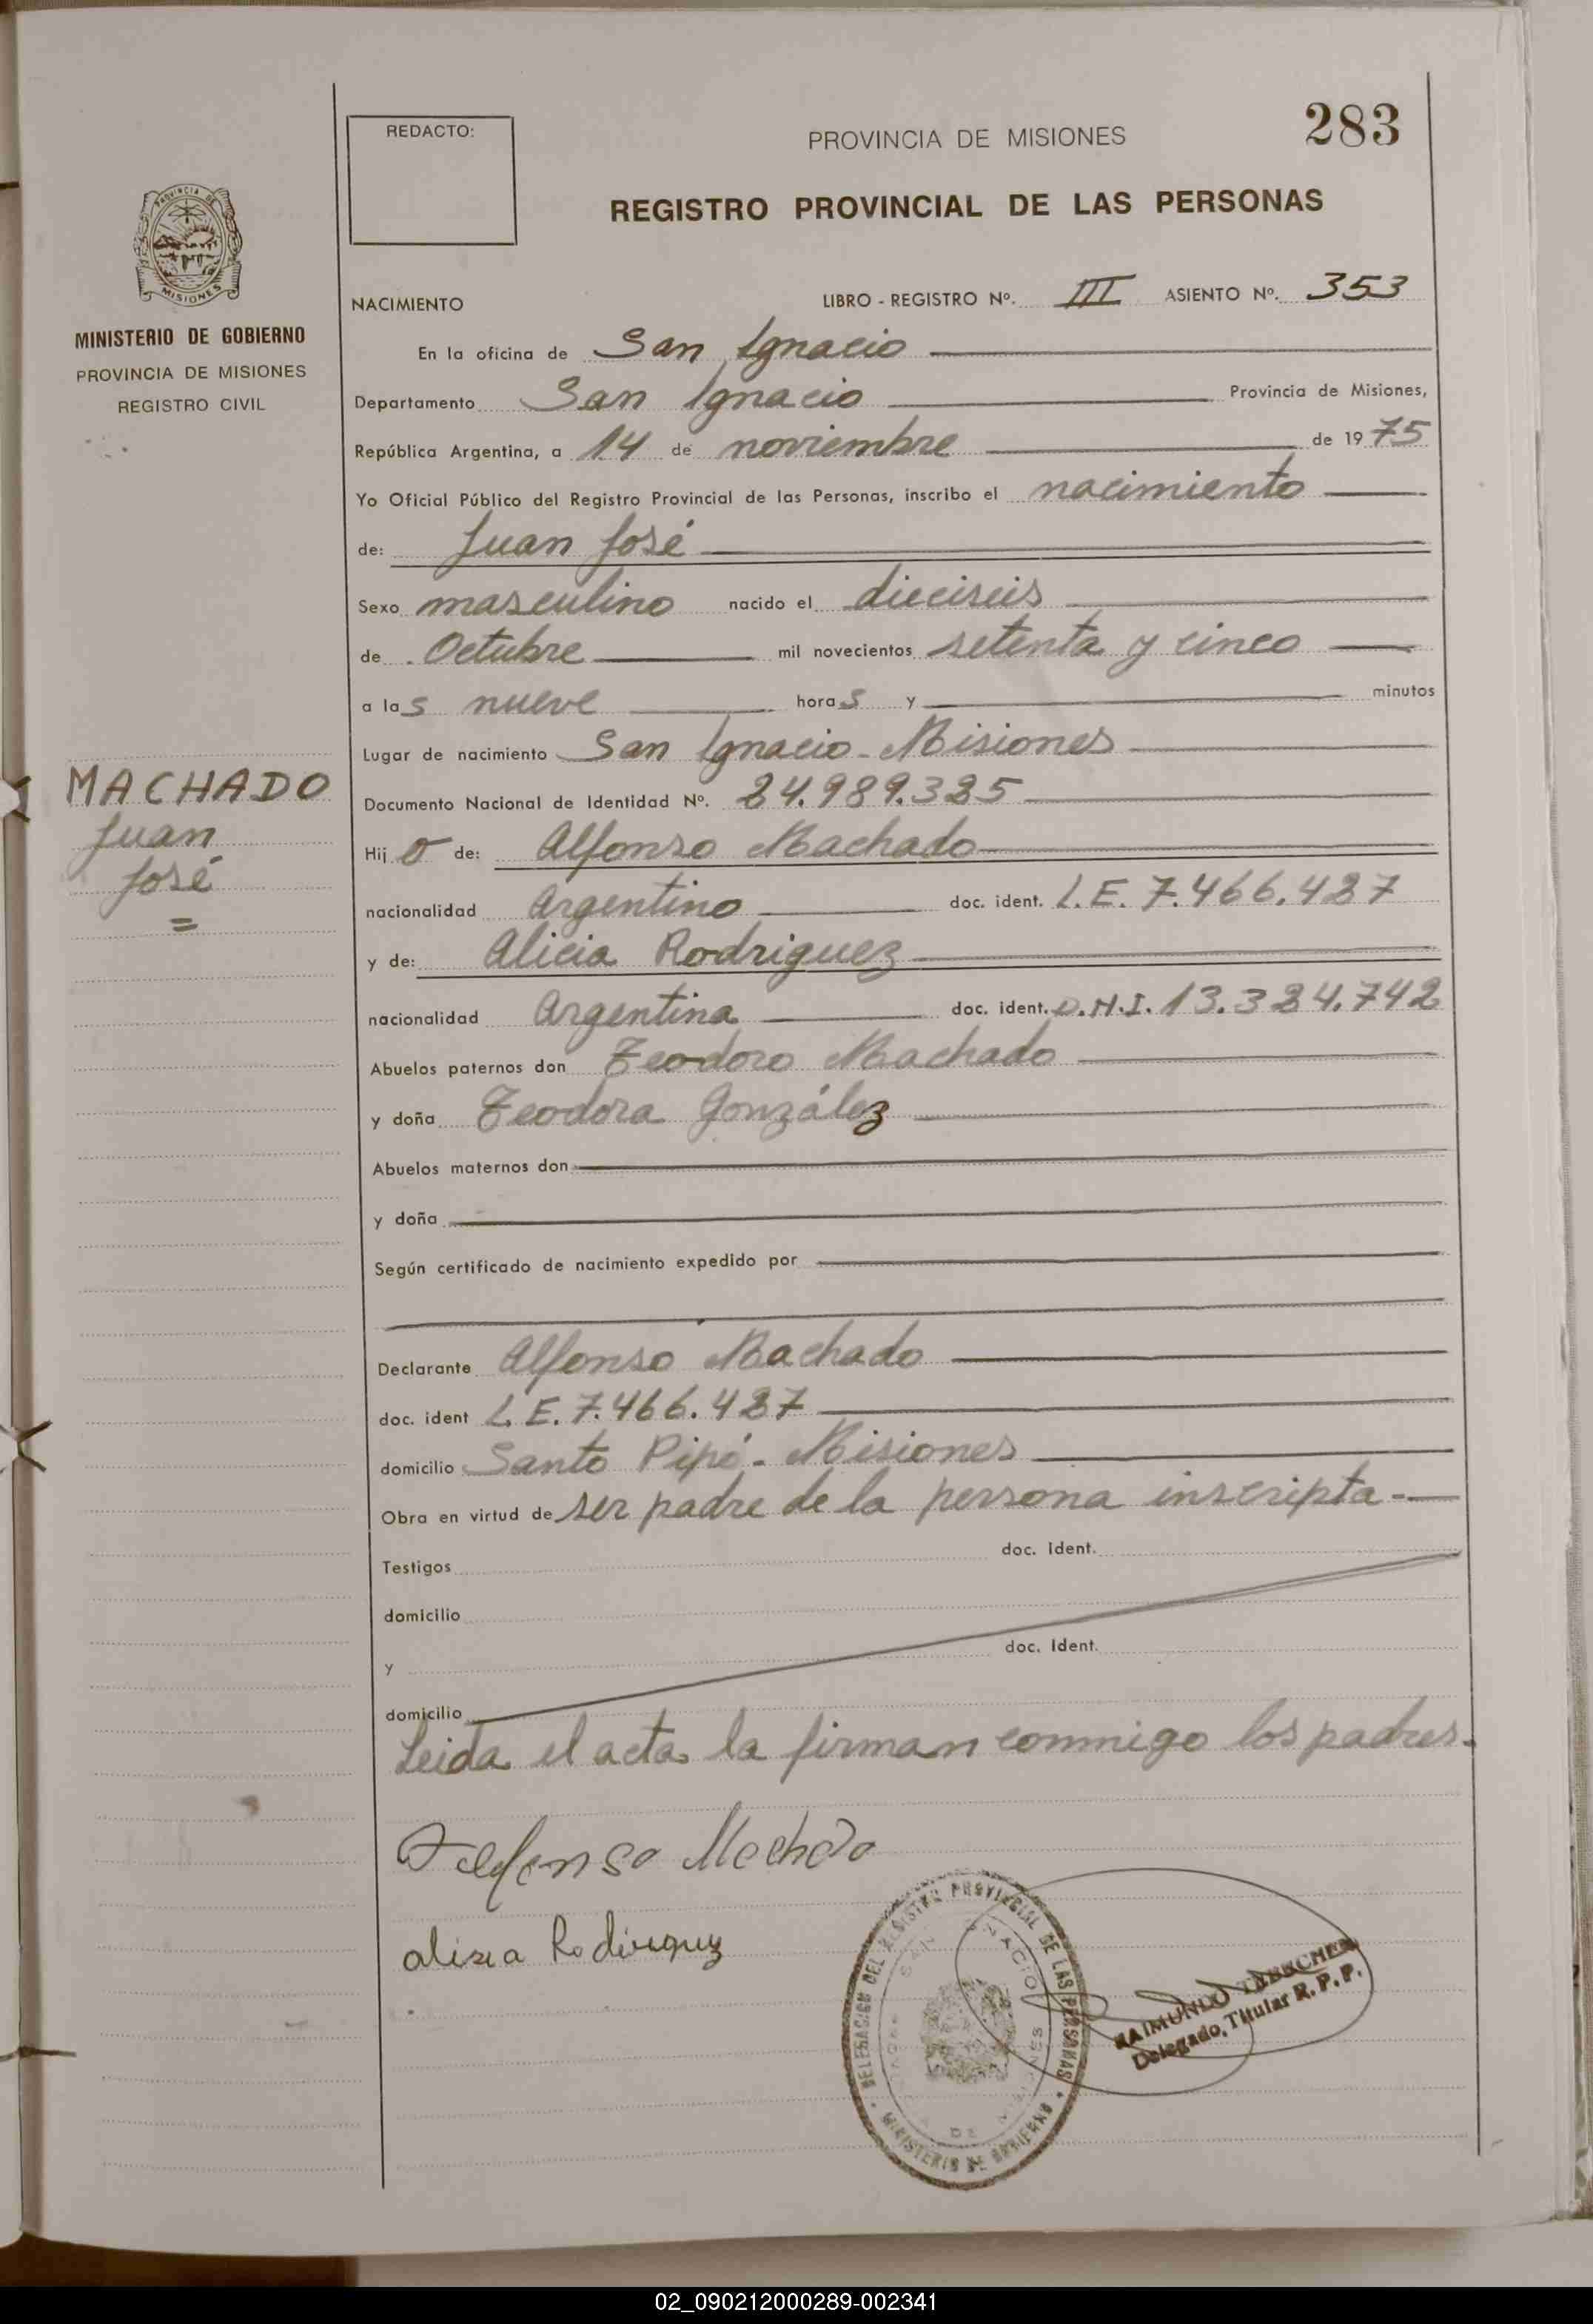 283
REDACTO:
PROVINCIA DE MISIONES
REGISTRO PROVINCIAL DE LAS PERSONAS
PROVINCIA DE
MISIONES
MINISTERIO DE GOBIERNO
PROVINCIA DE MISIONES
REGISTRO CIVIL
NACIMIENTO LIBRO - REGISTRO Nº. III ASIENTO Nº. 353
En la oficina de San Ignacio
Departamento San Ignacio Provincia de Misiones,
República Argentina, a 14 de noviembre de 1975
Yo Oficial Público del Registro Provincial de las Personas, inscribo el nacimiento
de: Juan José
Sexo masculino nacido el dieciseis
de Octubre mil novecientos setenta y cinco
a las nueve horas y minutos
Lugar de nacimiento San Ignacio - Misiones
MACHADO
Juan
José
=
Documento Nacional de Identidad Nº. 24.989.325
Hijo de: Alfonso Machado
nacionalidad Argentino doc. ident. L.E. 7.466.427
y de: Alicia Rodriguez
nacionalidad Argentina doc. ident. D.N.I. 13.324.742
Abuelos paternos don Teodoro Machado
y doña Teodora González
Abuelos maternos don
y doña
Según certificado de nacimiento expedido por
Declarante Alfonso Machado
doc. ident L.E. 7.466.427
domicilio Santo Pipó - Misiones
Obra en virtud de ser padre de la persona inscripta.-
Testigos doc. Ident.
domicilio
y doc. Ident.
domicilio
Leida el acta la firman conmigo los padres.
Machado
alisia Rodirguez
DELEGACION DEL REGISTRO PROVINCIAL DE LAS PERSONAS
SAN IGNACIO
MISIONES
DE
MINISTERIO DE GOBIERNO
RAIMUNDO
Delegado, Titular R. P. P.
02_090212000289-002341